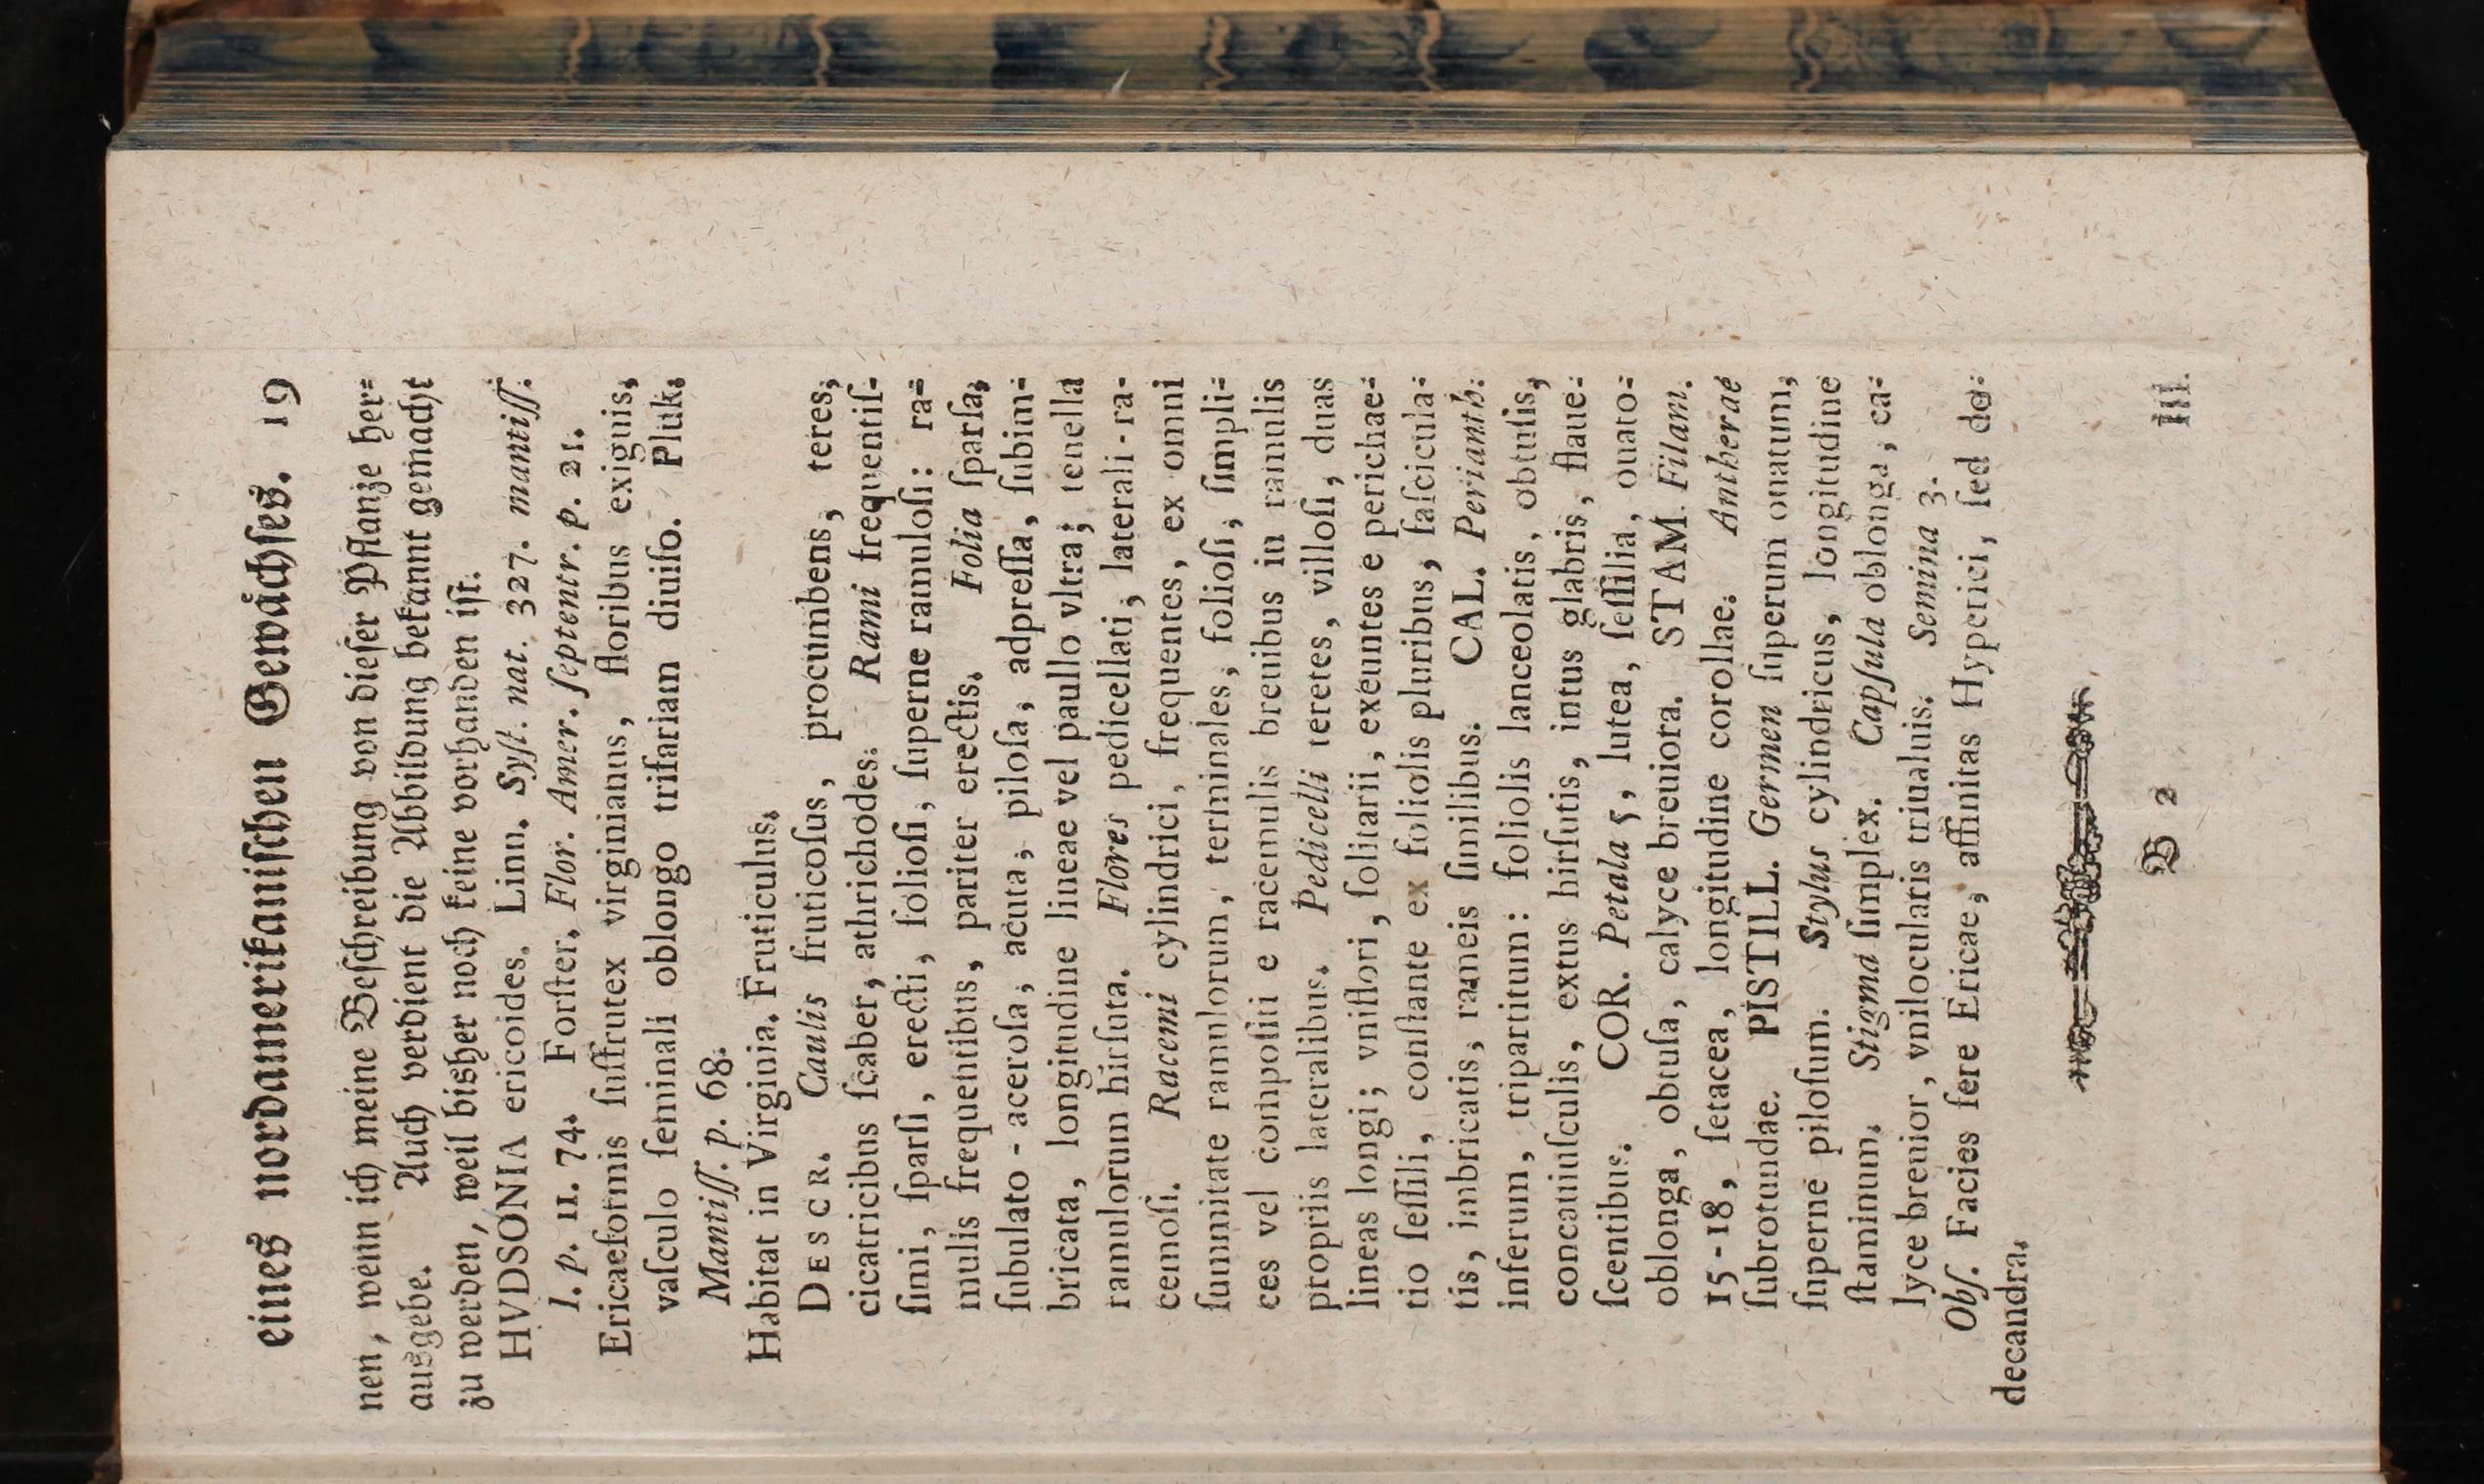 eines nordamerikanischen Gewächses. 19
nen, wenn ich meine Beschreibung von dieser Pflanze her=
ausgebe. Auch verdient die Abbildung bekannt gemacht
zu werden, weil bisher noch keine vorhanden ist.
HVDSONIA ericoides. Linn. Syſt. nat. 327. mantiſſ.
I. p. 11. 74. Forſter. Flor. Amer. ſeptentr. p. 21.
Ericaeformis ſuffrutex virginianus, floribus exiguis,
vaſculo ſeminali oblongo trifariam diuiſo. Pluk.
Mantiſſ. p. 68.
Habitat in Virginia. Fruticulus.
DESCR. Caulis fruticoſus, procumbens, teres,
cicatricibus ſcaber, athrichodes. Rami frequentiſ-
ſimi, ſparſi, erecti, folioſi, ſuperne ramuloſi: ra-
mulis frequentibus, pariter erectis. Folia ſparſa,
ſubulato - aceroſa, acuta, piloſa, adpreſſa, ſubim-
bricata, longitudine lineae vel paullo vltra; tenella
ramulorum hirſuta. Flores pedicellati, laterali-ra-
cemoſi. Racemi cylindrici, frequentes, ex omni
ſummitate ramulorum, terminales, folioſi, ſimpli-
ces vel compoſiti e racemulis breuibus in ramulis
propriis lateralibus. Pedicelli teretes, villoſi, duas
lineas longi; vniflori, ſolitarii, exeuntes e perichae-
tio ſeſſili, conſtante ex foliolis pluribus, faſcicula-
tis, imbricatis, rameis ſimilibus. CAL. Perianth.
inferum, tripartitum: foliolis lanceolatis, obtuſis,
concauiuſculis, extus hirſutis, intus glabris, flaue-
ſcentibus. COR. Petala 5, lutea, ſeſſilia, ouato-
oblonga, obtuſa, calyce breuiora. STAM. Filam.
15-18, ſetacea, longitudine corollae. Antherae
ſubrotundae. PISTILL. Germen ſuperum ouatum,
ſuperne piloſum. Stylus cylindricus, longitudine
ſtaminum. Stigma ſimplex. Capſula oblonga, ca-
lyce breuior, vnilocularis triualuis. Semina 3.
Obſ. Facies fere Ericae, affinitas Hyperici, ſed do-
decandra.
B 2
III.